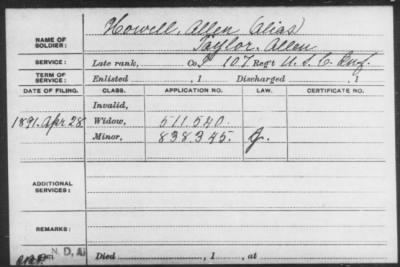 Howell, Allen (alias)
NAME OF SOLDIER: Taylor, Allen
SERVICE: Late rank, Co. 107 Reg't U. S. C. Inf.
TERM OF SERVICE: Enlisted , 1 Discharged , 1
DATE OF FILING. CLASS. APPLICATION NO. LAW. CERTIFICATE NO.
Invalid,
1891. Apr 28 Widow, 511.540.
Minor, 838.345.
ADDITIONAL SERVICES:
REMARKS:
Died , 1 , at